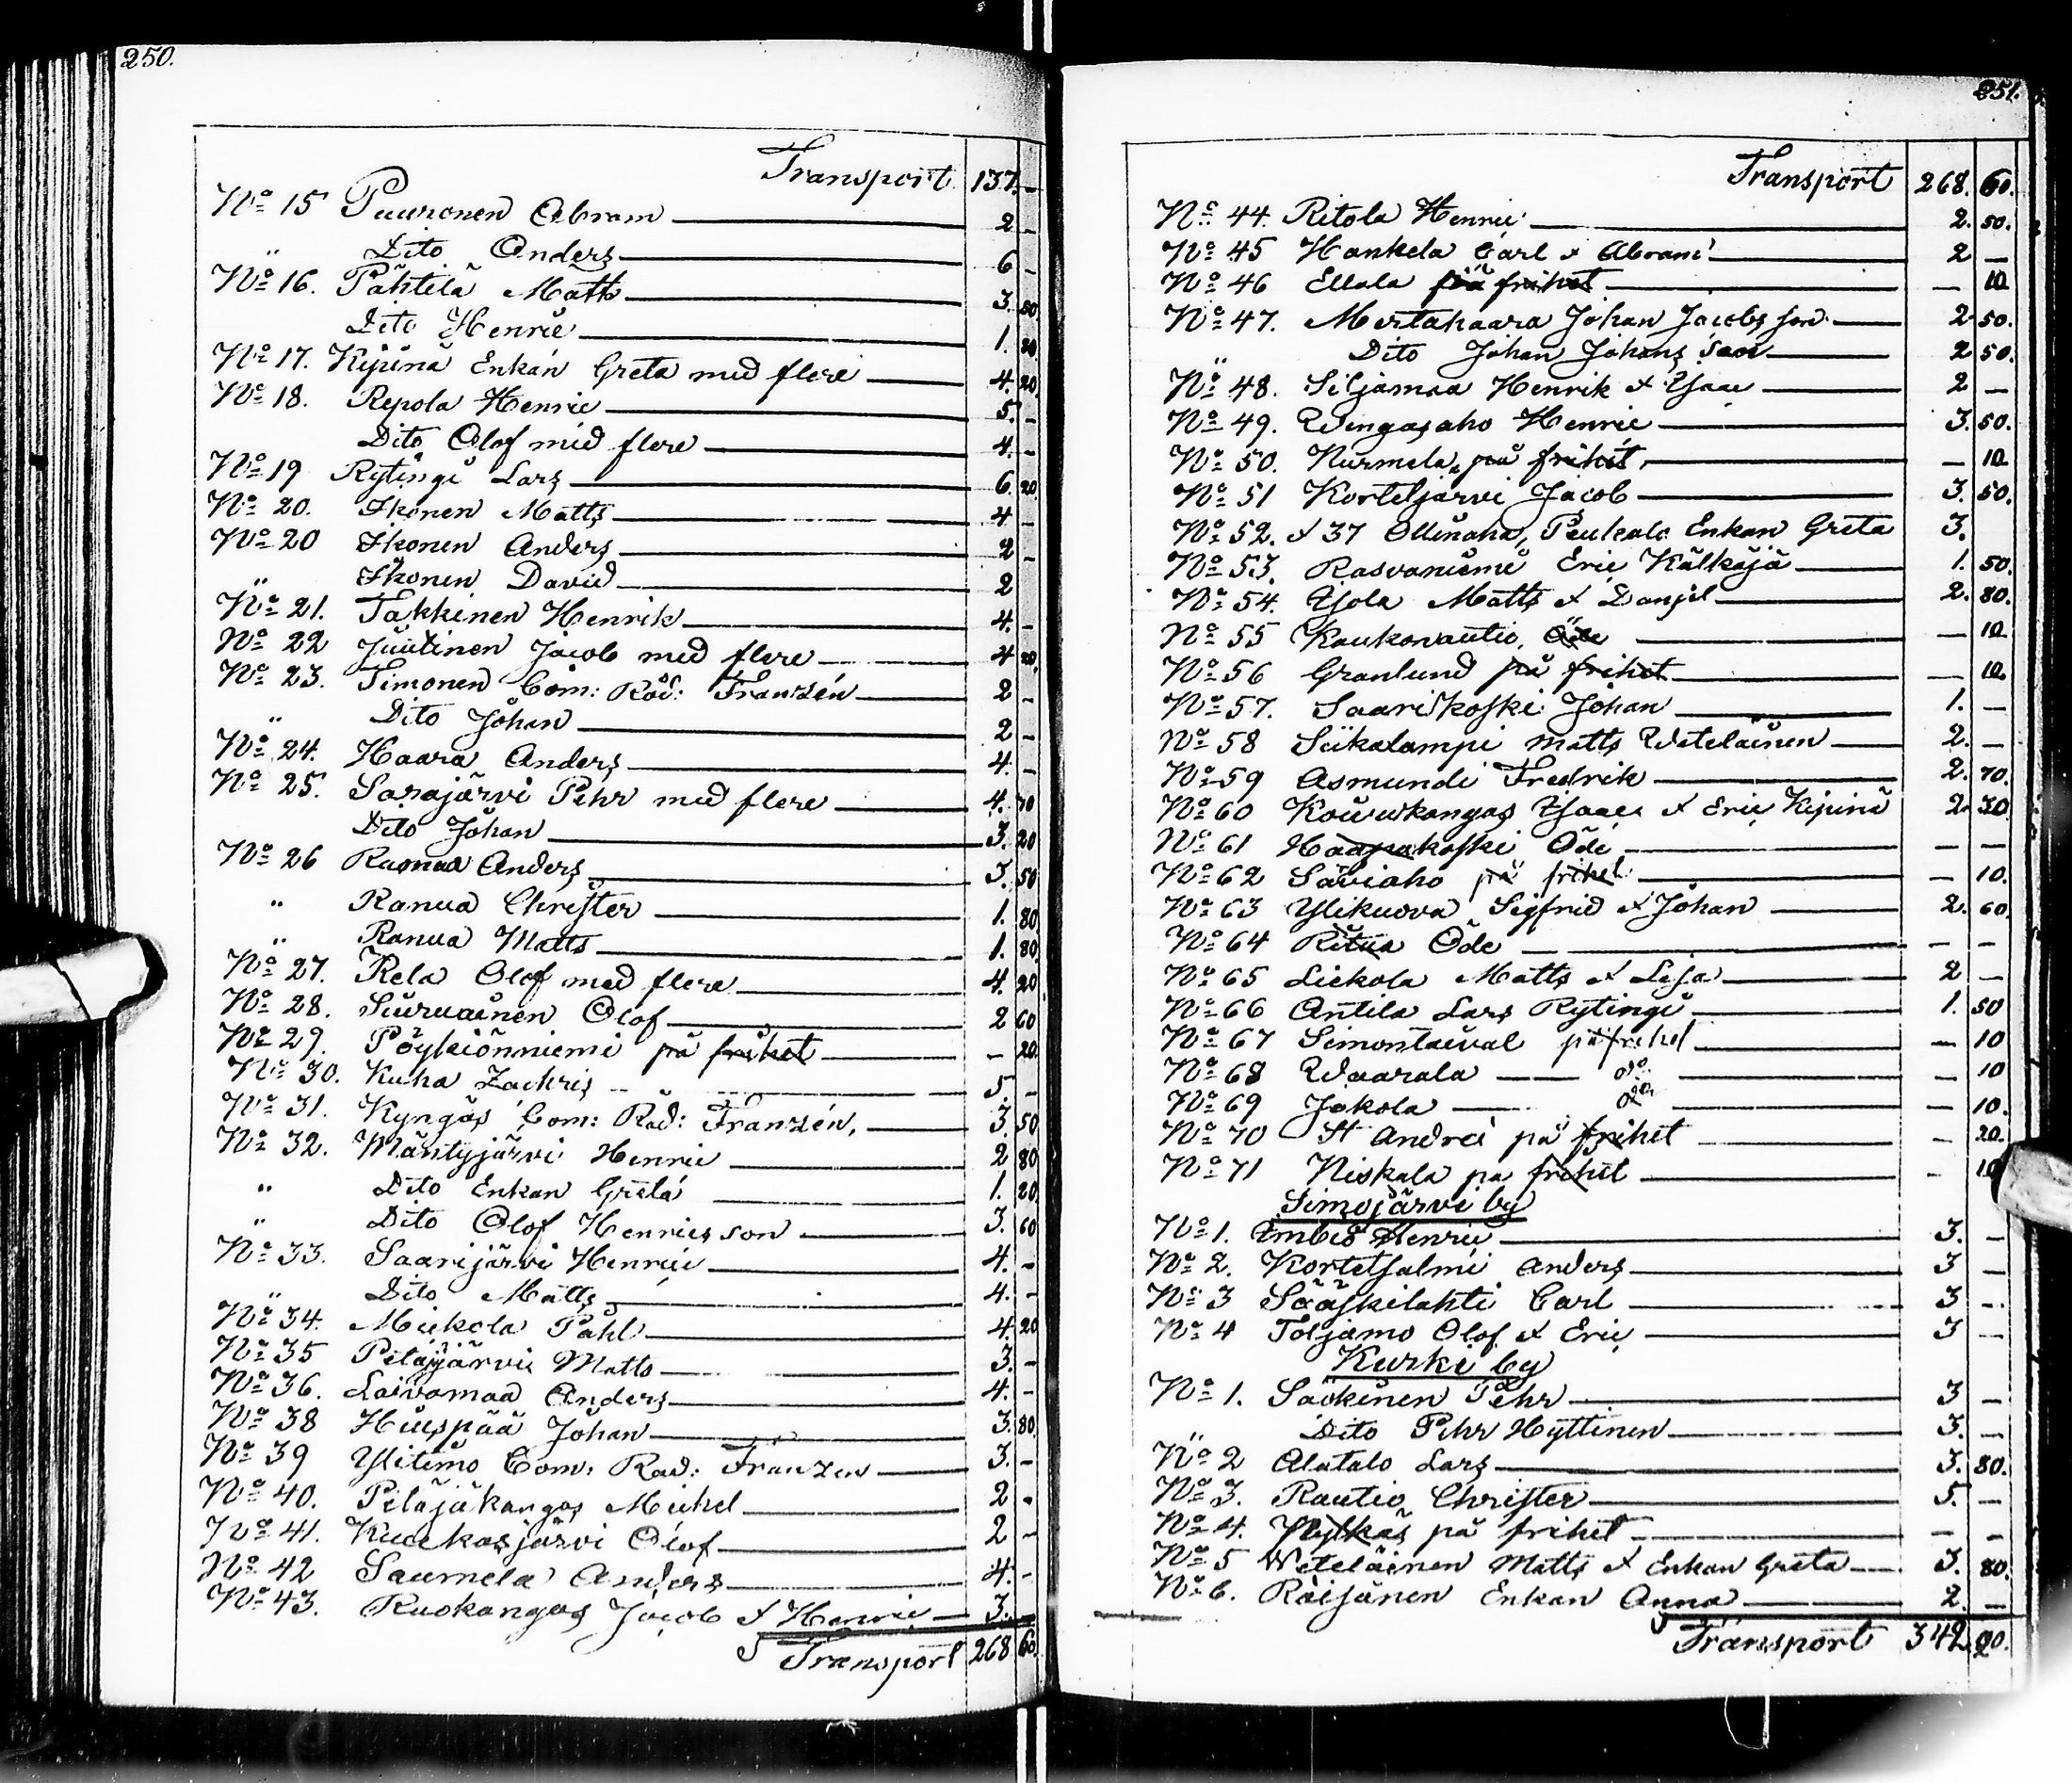 250.
Transport 137. -
No 15 Puuronen Abram 2 -
" Dito Anders 6 -
No 16. Pähtilä Matts 3. 80
Dito Henric 1. 80
No 17. Kipinä Enkan Greta med flere 4. 20
No 18. Repola Henric 5. -
Dito Olof med flere 4. -
No 19 Rytingi Lars 6. 20
No 20. Ikonen Matts 4 -
No 20 Ikonen Anders 2 -
" Ikonen David 2
No 21. Takkinen Henrik 4. -
No 22 Juutinen Jacob med flere 4 20
No 23. Timonen Com: Råd: Franzén 2 -
" Dito Johan 2 -
No 24. Haara Anders 4. -
No 25. Sarajärvi Pehr med flere 4. 70
Dito Johan 3. 20
No 26 Ranua Anders 3. 50
" Ranua Christer 1. 80
" Ranua Matts 1. 80
No 27. Rela Olof med flere 4. 20
No 28. Siuruainen Olof 2 60
No 29. Pöykiönniemi på frihet - 20
No 30. Kuha Zachris 5. -
No 31. Kyngäs Com: Råd: Franzén, 3. 50
No 32. Mäntyjärvi Henric 2 80
" Dito Enkan Greta 1. 20
" Dito Olof Henricsson 3. 60
No 33. Saarijärvi Henric 4. -
" Dito Matts 4. -
No 34. Mickola Påhl 4. 20
No 35 Petäjäjärvi Matts 3. -
No 36. Laivamaa Anders 4. -
No 38 Hiuspää Johan 3. 80
No 39 Ylitimo Com: Råd: Franzen 3. -
No 40. Petäjäkangas Michel 2 -
No 41. Kuukasjärvi Olof 2 -
No 42 Saumela Anders 4. -
No 43. Ruokangas Jacob & Henric 3.
Transport 268 60
251.
Transport 268. 60.
No 44. Ritola Henric 2. 50.
No 45 Hankela Carl & Abram 2 -
No 46 Ellala på frihet - 10
No 47. Mertahaara Johan Jacobs son 2. 50.
" Dito Johan Johans son 2 50.
No 48. Siljamaa Henrik & Ysac 2 -
No 49. Wengasaho Henric 3. 50.
No 50. Nurmela, på frihet, - 10
No 51 Korteljärvi Jacob 3. 50.
No 52. & 37 Ollinaho, Peukalo Enkan Greta 3.
No 53. Rasvaniemi Eric Kälkäjä 1. 50.
No 54. Yjola Matts & Danjel 2. 80.
No 55 Koukonautio, Öde - 10
No 56 Granlund på frihet - 10
No 57. Saariskoski Johan 1. -
No 58 Siikalampi Matts Weteläinen 2. -
No 59 Asmundi Fredrik 2. 70.
No 60 Koiwukangas Ysaac & Eric Kipinä 2. 30
No 61 Haapakoski Öde - -
No 62 Säviaho på frihet - 10.
No 63 Ylikuova Sigfrid & Johan 2. 60.
No 64 Ritua Öde - -
No 65 Liekola Matts & Lisa 2 -
No 66 Antila Lars Rytingi 1. 50
No 67 Simontaival på frihet - 10
No 68 Waarala do - 10
No 69 Jokola do - 10.
No 70 St Andrei på frihet - 20.
No 71 Niskala på frihet - 10
Simojärvi by
No 1. Impiö Henric 3. -
No 2. Kortetsalmi Anders 3 -
No 3 Sääskilahti Carl 3 -
No 4 Toljamo Olof & Eric 3 -
Kurki by
No 1. Säckinen Pehr 3 -
" Dito Pehr Hyttinen 3. -
No 2 Alatalo Lars 3. 80.
No 3. Rautio Christer 5. -
No 4. på frihet - -
No 5 Weteläinen Matts & Enkan Greta 3. 80.
No 6. Räisänen Enkan Anna 2. -
Transport 342. 20.